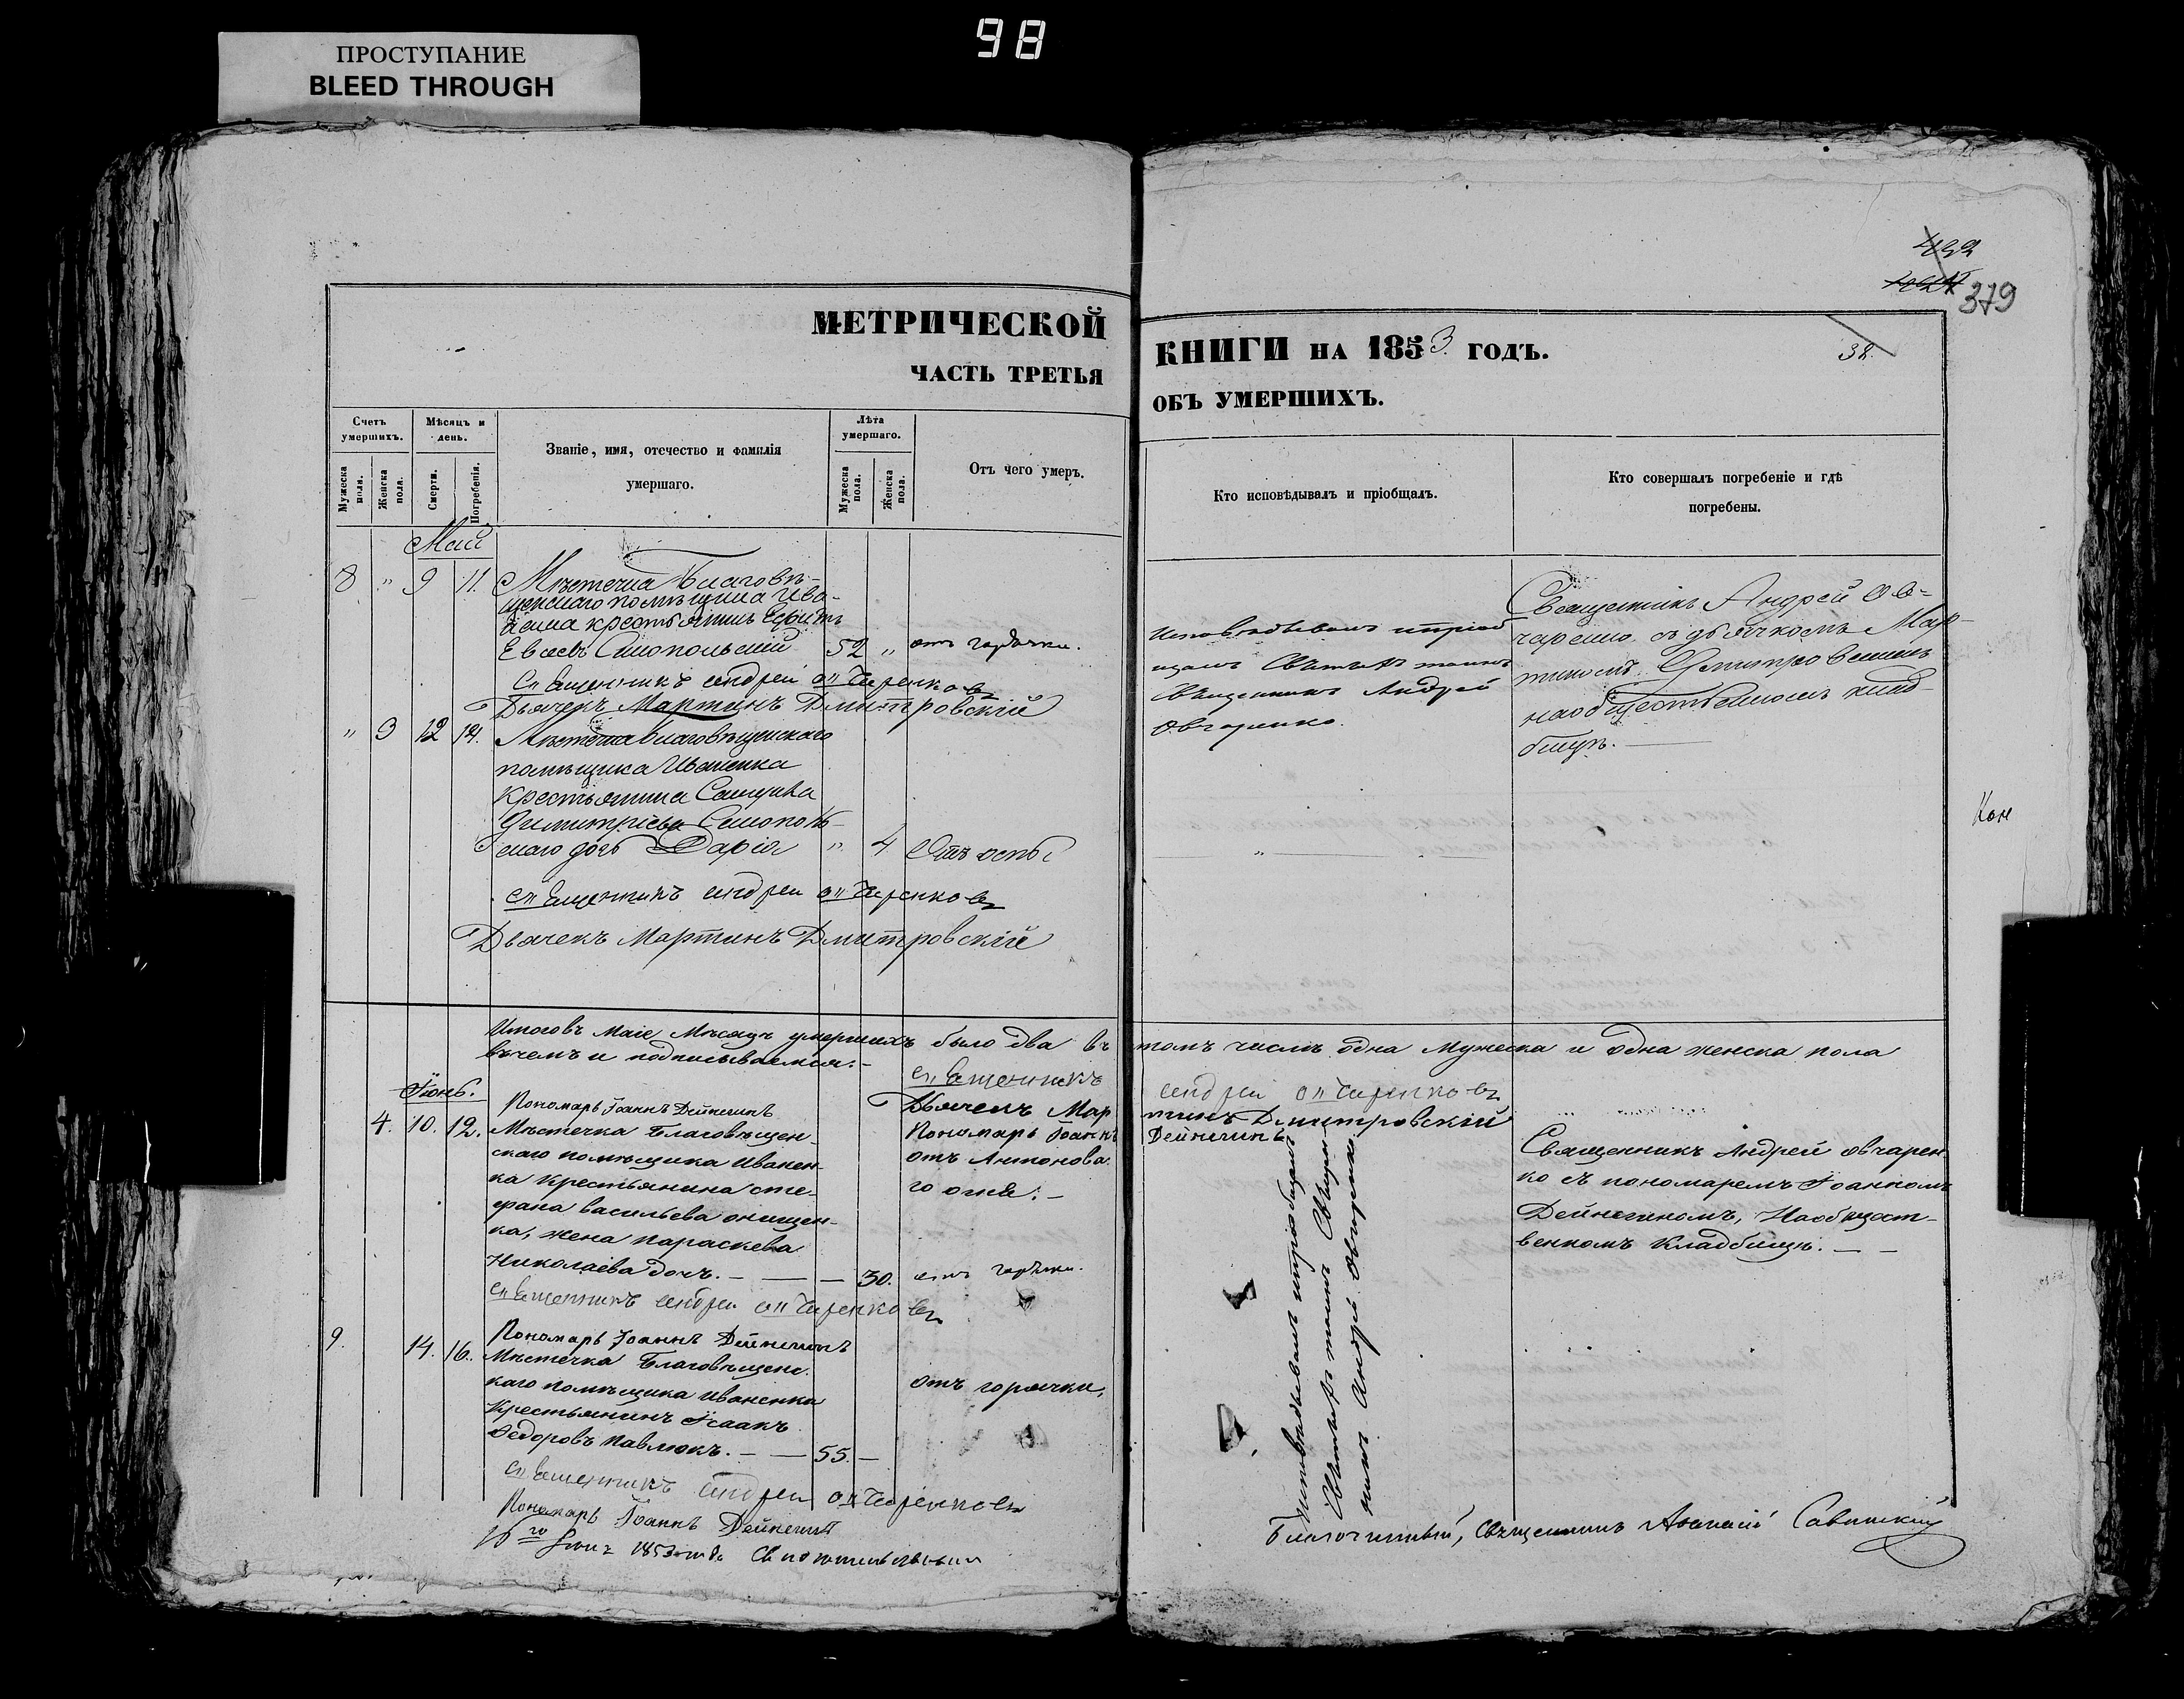 98
ПРОСТУПАНИЕ
BLEED THROUGH
379
38.
МЕТРИЧЕСКОЙ
ЧАСТЬ ТРЕТЬЯ
КНИГИ НА 1853 ГОДЪ.
ОБЪ УМЕРШИХЪ.
Счетъ умершихъ.
Мужеска пола.
Женска пола.
Мѣсяцъ и день.
Смерти.
Погребенія.
Званіе, имя, отчество и фамилія
умершаго.
Лѣта умершаго.
Мужеска пола.
Женска пола.
Отъ чего умеръ.
Кто исповѣдывалъ и пріобщалъ.
Кто совершалъ погребеніе и гдѣ
погребены.
Май
8 " 9 11. Мѣстечка Благовѣ-
щенскаго помѣщика Ива-
ненка крестьянинъ
52 " отъ горячки.
Священникъ Андрей Овчаренковъ
Дьячекъ Мартинъ Дмитровскій
Священникъ Андрей
Овчаренко.
Священникъ Андрей Ов-
чаренко съ дьячкомъ Мар-
тиномъ Дмитровскимъ
на общественномъ клад-
бищѣ.
" 3 12 14. Мѣстечка Благовѣщенскаго
помѣщика Иваненка
Крестьянина
Димитріева
дочь Дарія " 4 Отъ оспы
Священникъ Андрей Овчаренковъ
Дьячекъ Мартинъ Дмитровскій
Кон
Итого въ Маіе Мѣсяцѣ умершихъ было два въ томъ числѣ одна Мужеска и одна женска пола
въ чемъ и подписываемся:-
Священникъ Андрей Овчаренковъ
Дьячекъ Мартинъ Дмитровскій
Пономарь Іоаннъ Дейнегинъ
Іюнь.
Пономарь Іоаннъ Дейнегинъ
4. 10. 12. Мѣстечка Благовѣщен-
скаго помѣщика Иванен-
ка Крестьянина Сте-
фана Васильева Онищен-
ка, жена Параскева
Николаева дочь. — — — 30.
отъ Антонова-
го огня: -
отъ горячки.
Священникъ Андрей Овчаренковъ
Священникъ Андрей Овчарен-
ко съ пономаремъ Іоанномъ
Дейнегиномъ, На общест-
венномъ Кладбищѣ. — —
Исповѣдывалъ и пріобщалъ
Святыхъ таинъ Священ-
никъ Андрей Овчаренко
Пономарь Іоаннъ Дейнегинъ
9. 14. 16. Мѣстечка Благовѣщенс-
каго помѣщика Иваненка
Крестьянинъ Ісаакъ
Федоровъ Павлюкъ. — — 55. —
отъ горячки,
Священникъ Андрей Овчаренковъ
Пономарь Іоаннъ Дейнегинъ
16го Іюня 1853 года Свидетельствовалъ
Благочинный, Священникъ Аѳанасій Савинскій